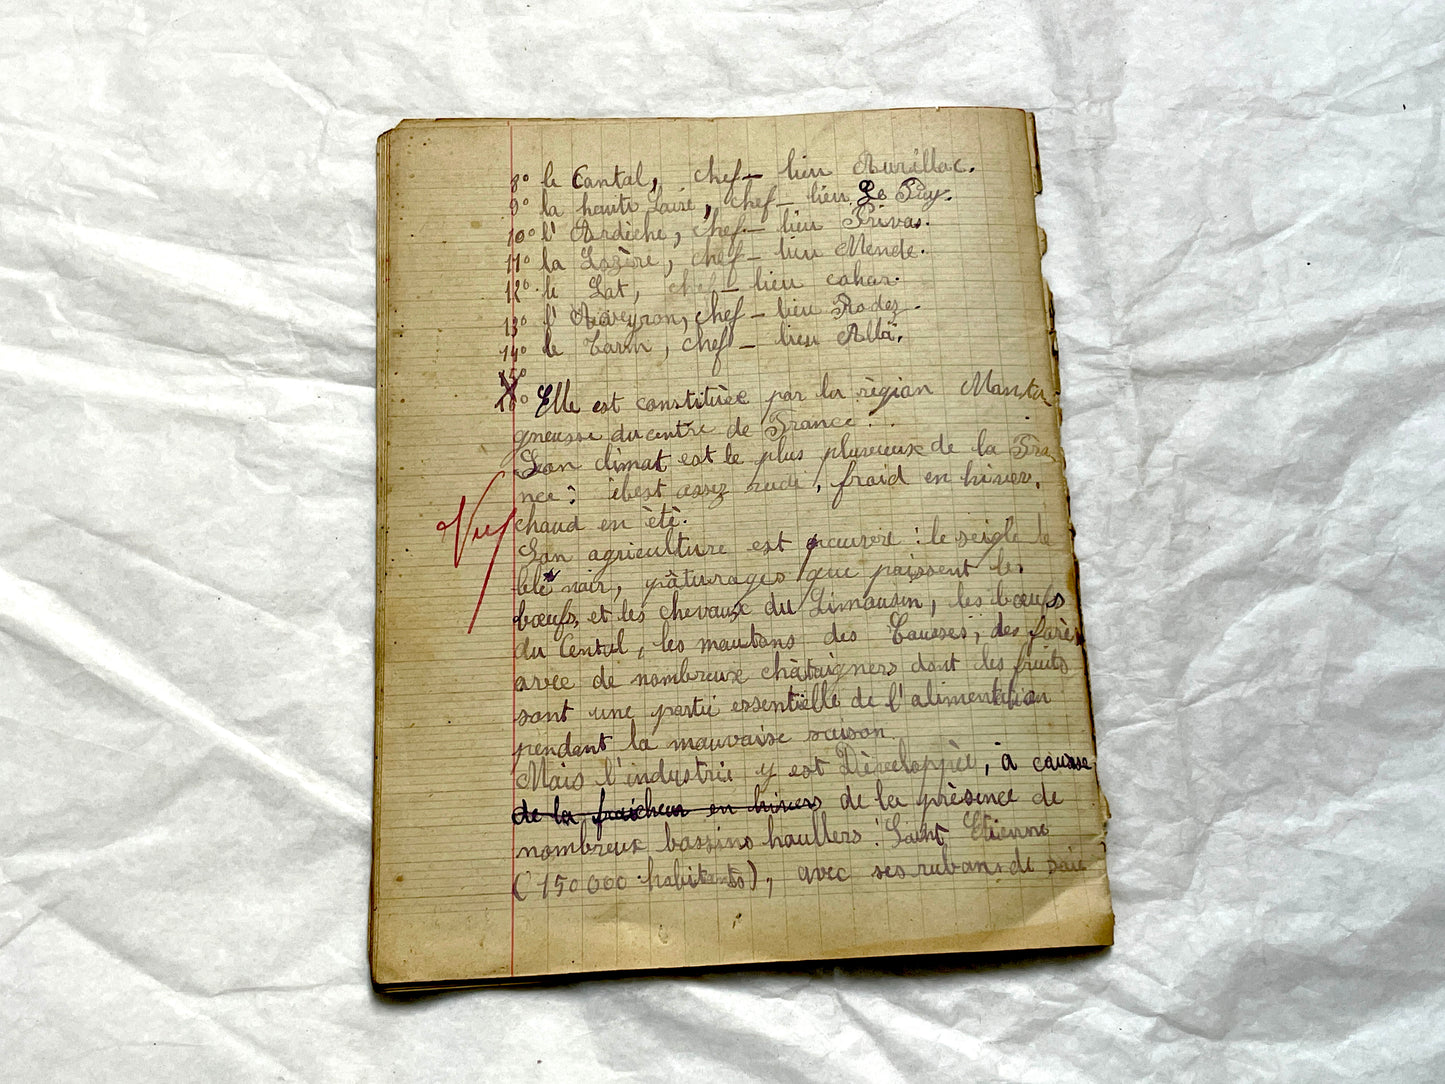 8° le Cantal, chef_lieu Aurillac.
9° la haute Loire, chef_lieu Le Puy.
10° l'Ardèche, chef_lieu Privas.
11° la Lozère, chef_lieu Mende.
12° le Lot, chef_lieu cahor.
13° l'Aveyron, chef_lieu Rodez.
14° le Tarn, chef_lieu
15°
Elle est constituée par la région Monta
gneusse du centre de France.
Son climat est le plus pluvieux de la Fra
nce : ilest assez rude, froid en hiver,
chaud en été.
Vu
Son agriculture est pauvre : le seigle le
blé noir, pâturages que paissent les
bœufs, et les chevaux du Limousin, les bœufs
du Cental, les moutons des Causses, des forêt
avec de nombreux châtaigners dont les fruits
sont une partie essentielle de l'alimentation
pendant la mauvaise saison
Mais l'industrie y est Développée, à causse
de la fraicheur en hivers de la présence de
nombreux bassins houllers : Saint Etienne
(150 000 habitants), avec ses rubans de soie